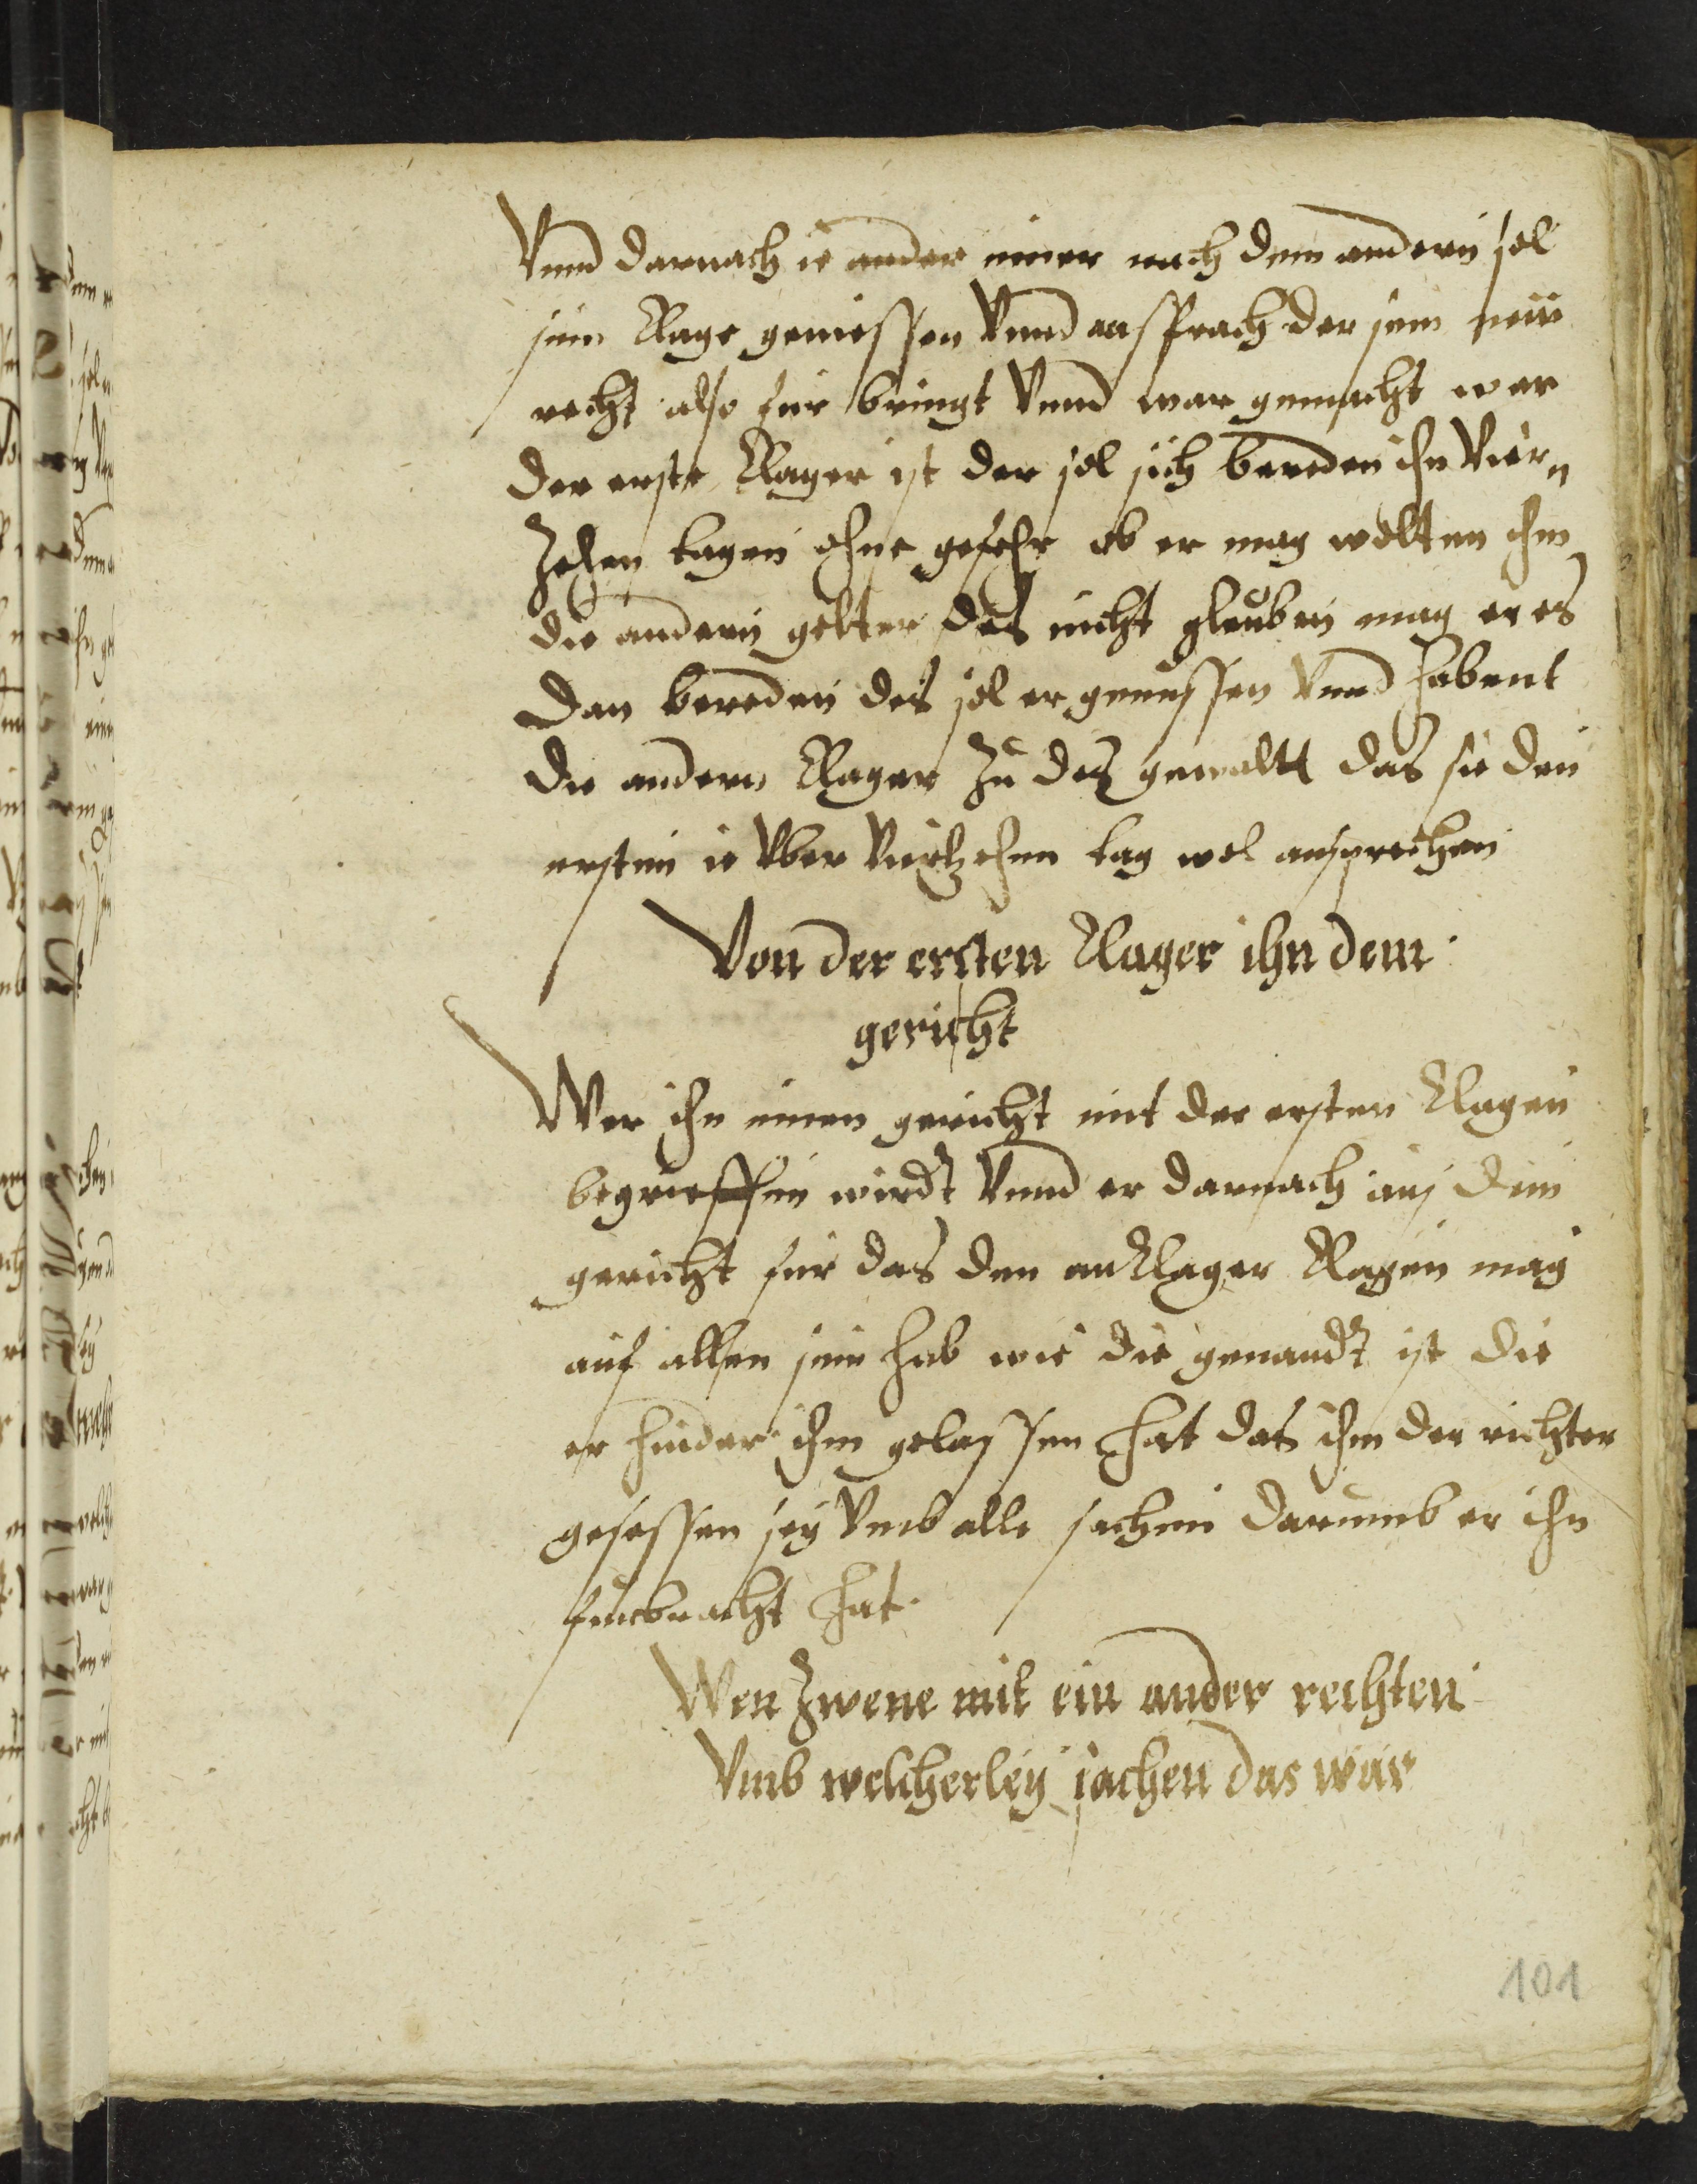 Vnnd darnach ie ander einer nach dem andern sol
sein klage geniessen Vnnd ansprach der sein new
recht also für bringt Vnnd war gemacht wer
der erste klager ist der sol sich bereden ihn Vier¬
zehen tagen ohne gefehr ob er mag wolten ihm
die andern gelter des nicht glauben mag er es
dan bereden des sol er geniessen Vnnd habent
die andern klager zu des gewaltt das sie den
ersten ie Vber Vierzehen tag wol ansprechen
Von der ersten klager ihn dem
gericht
Wer ihn einen gericht mit der ersten klagen
begrieffen wirdt Vnnd er darnach aus dem
gericht für das den anklager klagen mag
auf allen sein hab wie die genandt ist die
er hinder ihm gelassen hat das ihm der richter
gesessen sey Vmb alle sachen darumb er ihn
fürbracht hat
Wen zwene mit ein ander rechten
Vmb welcherley sachen das wär
101